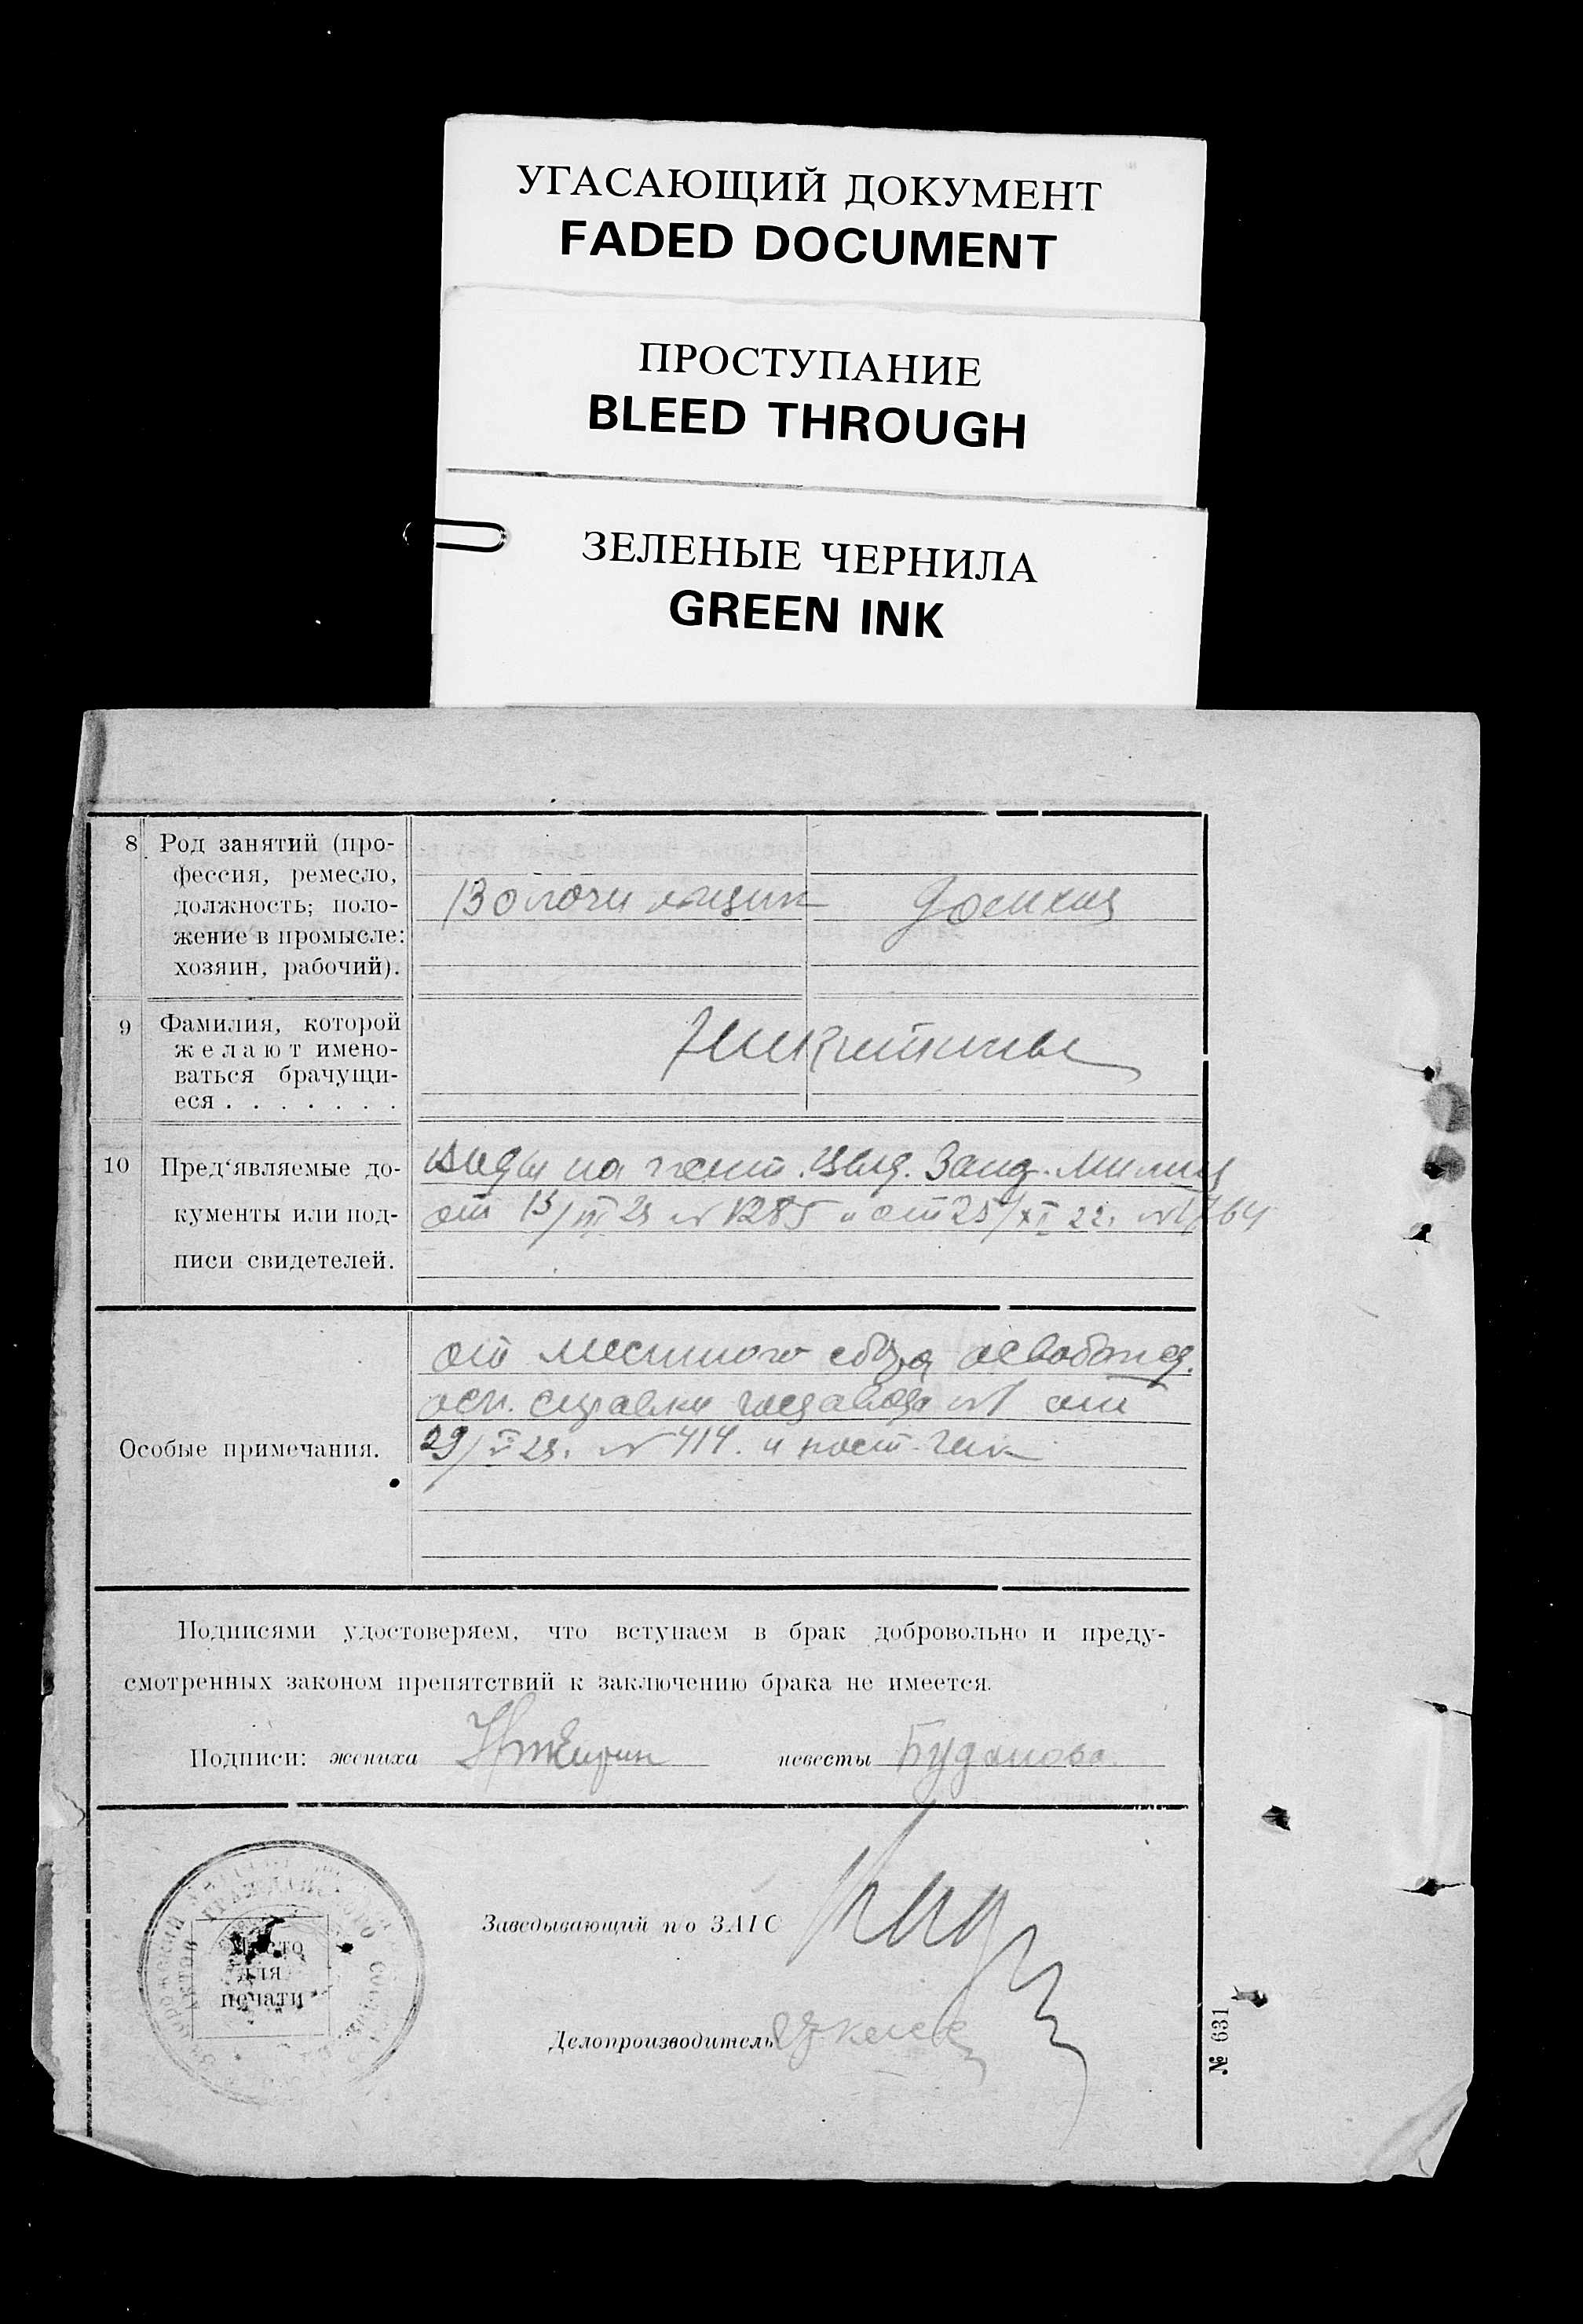 УГАСАЮЩИЙ ДОКУМЕНТ
FADED DOCUMENT
ПРОСТУПАНИЕ
BLEED THROUGH
ЗЕЛЕНЫЕ ЧЕРНИЛА
GREEN INK
8 Род занятий (про-
фессия, ремесло,
должность; поло-
жение в промысле:
хозяин, рабочий).
9 Фамилия, которой
желают имено-
ваться брачущи-
еся . . . . . . .
Никитины
10 Пред‘являемые до-
кументы или под-
писи свидетелей.
Виды на жит. выд. Милиц
от 13/III 23 № 1285 и от 25/XI 22. №
Особые примечания.
от местного сбора освобожд.
осн. справки госзавода №1 от
29/V 23. № 414. и пост.
Подписями удостоверяем, что вступаем в брак добровольно и преду-
смотренных законом препятствий к заключению брака не имеется.
Подписи: жениха невесты Буданова
Заведывающий по ЗАГС
Место
для
печати
Делопроизводитель
№ 631